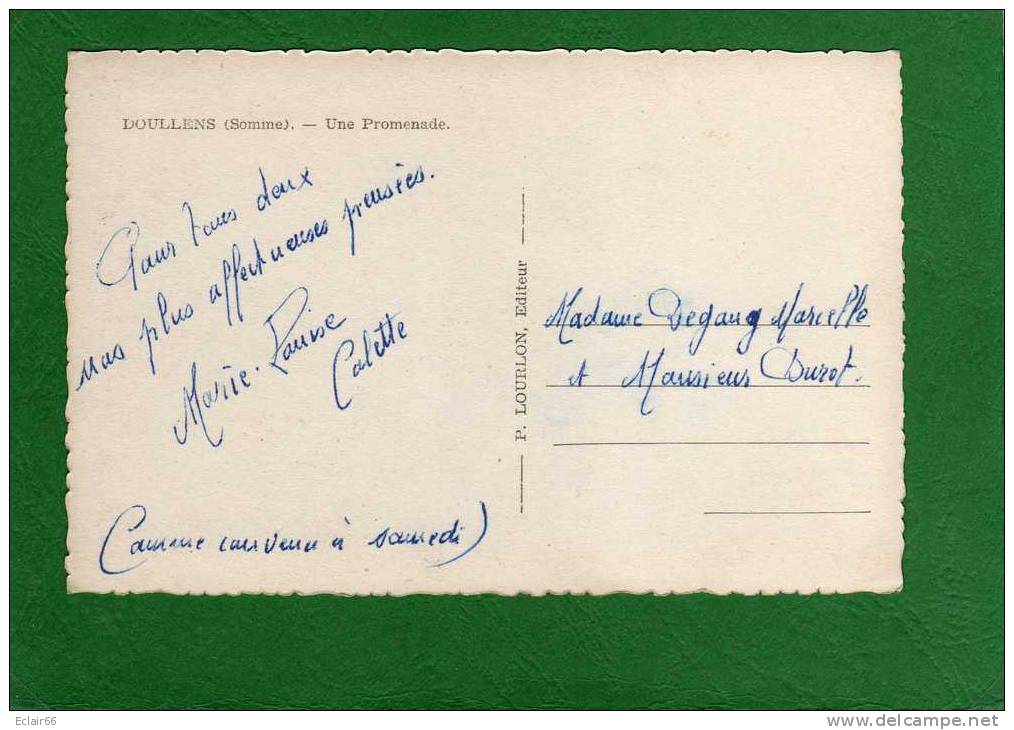 DOULLENS (Somme). — Une Promenade.
Pour vous deux
nos plus affectueuses pensées.
Marie-Louise
Colette
(Comme convenu à samedi)
P. LOURLON, Editeur
Madame Degang Marcelle
et Monsieur Durot.
Eclair66
www.delcampe.net